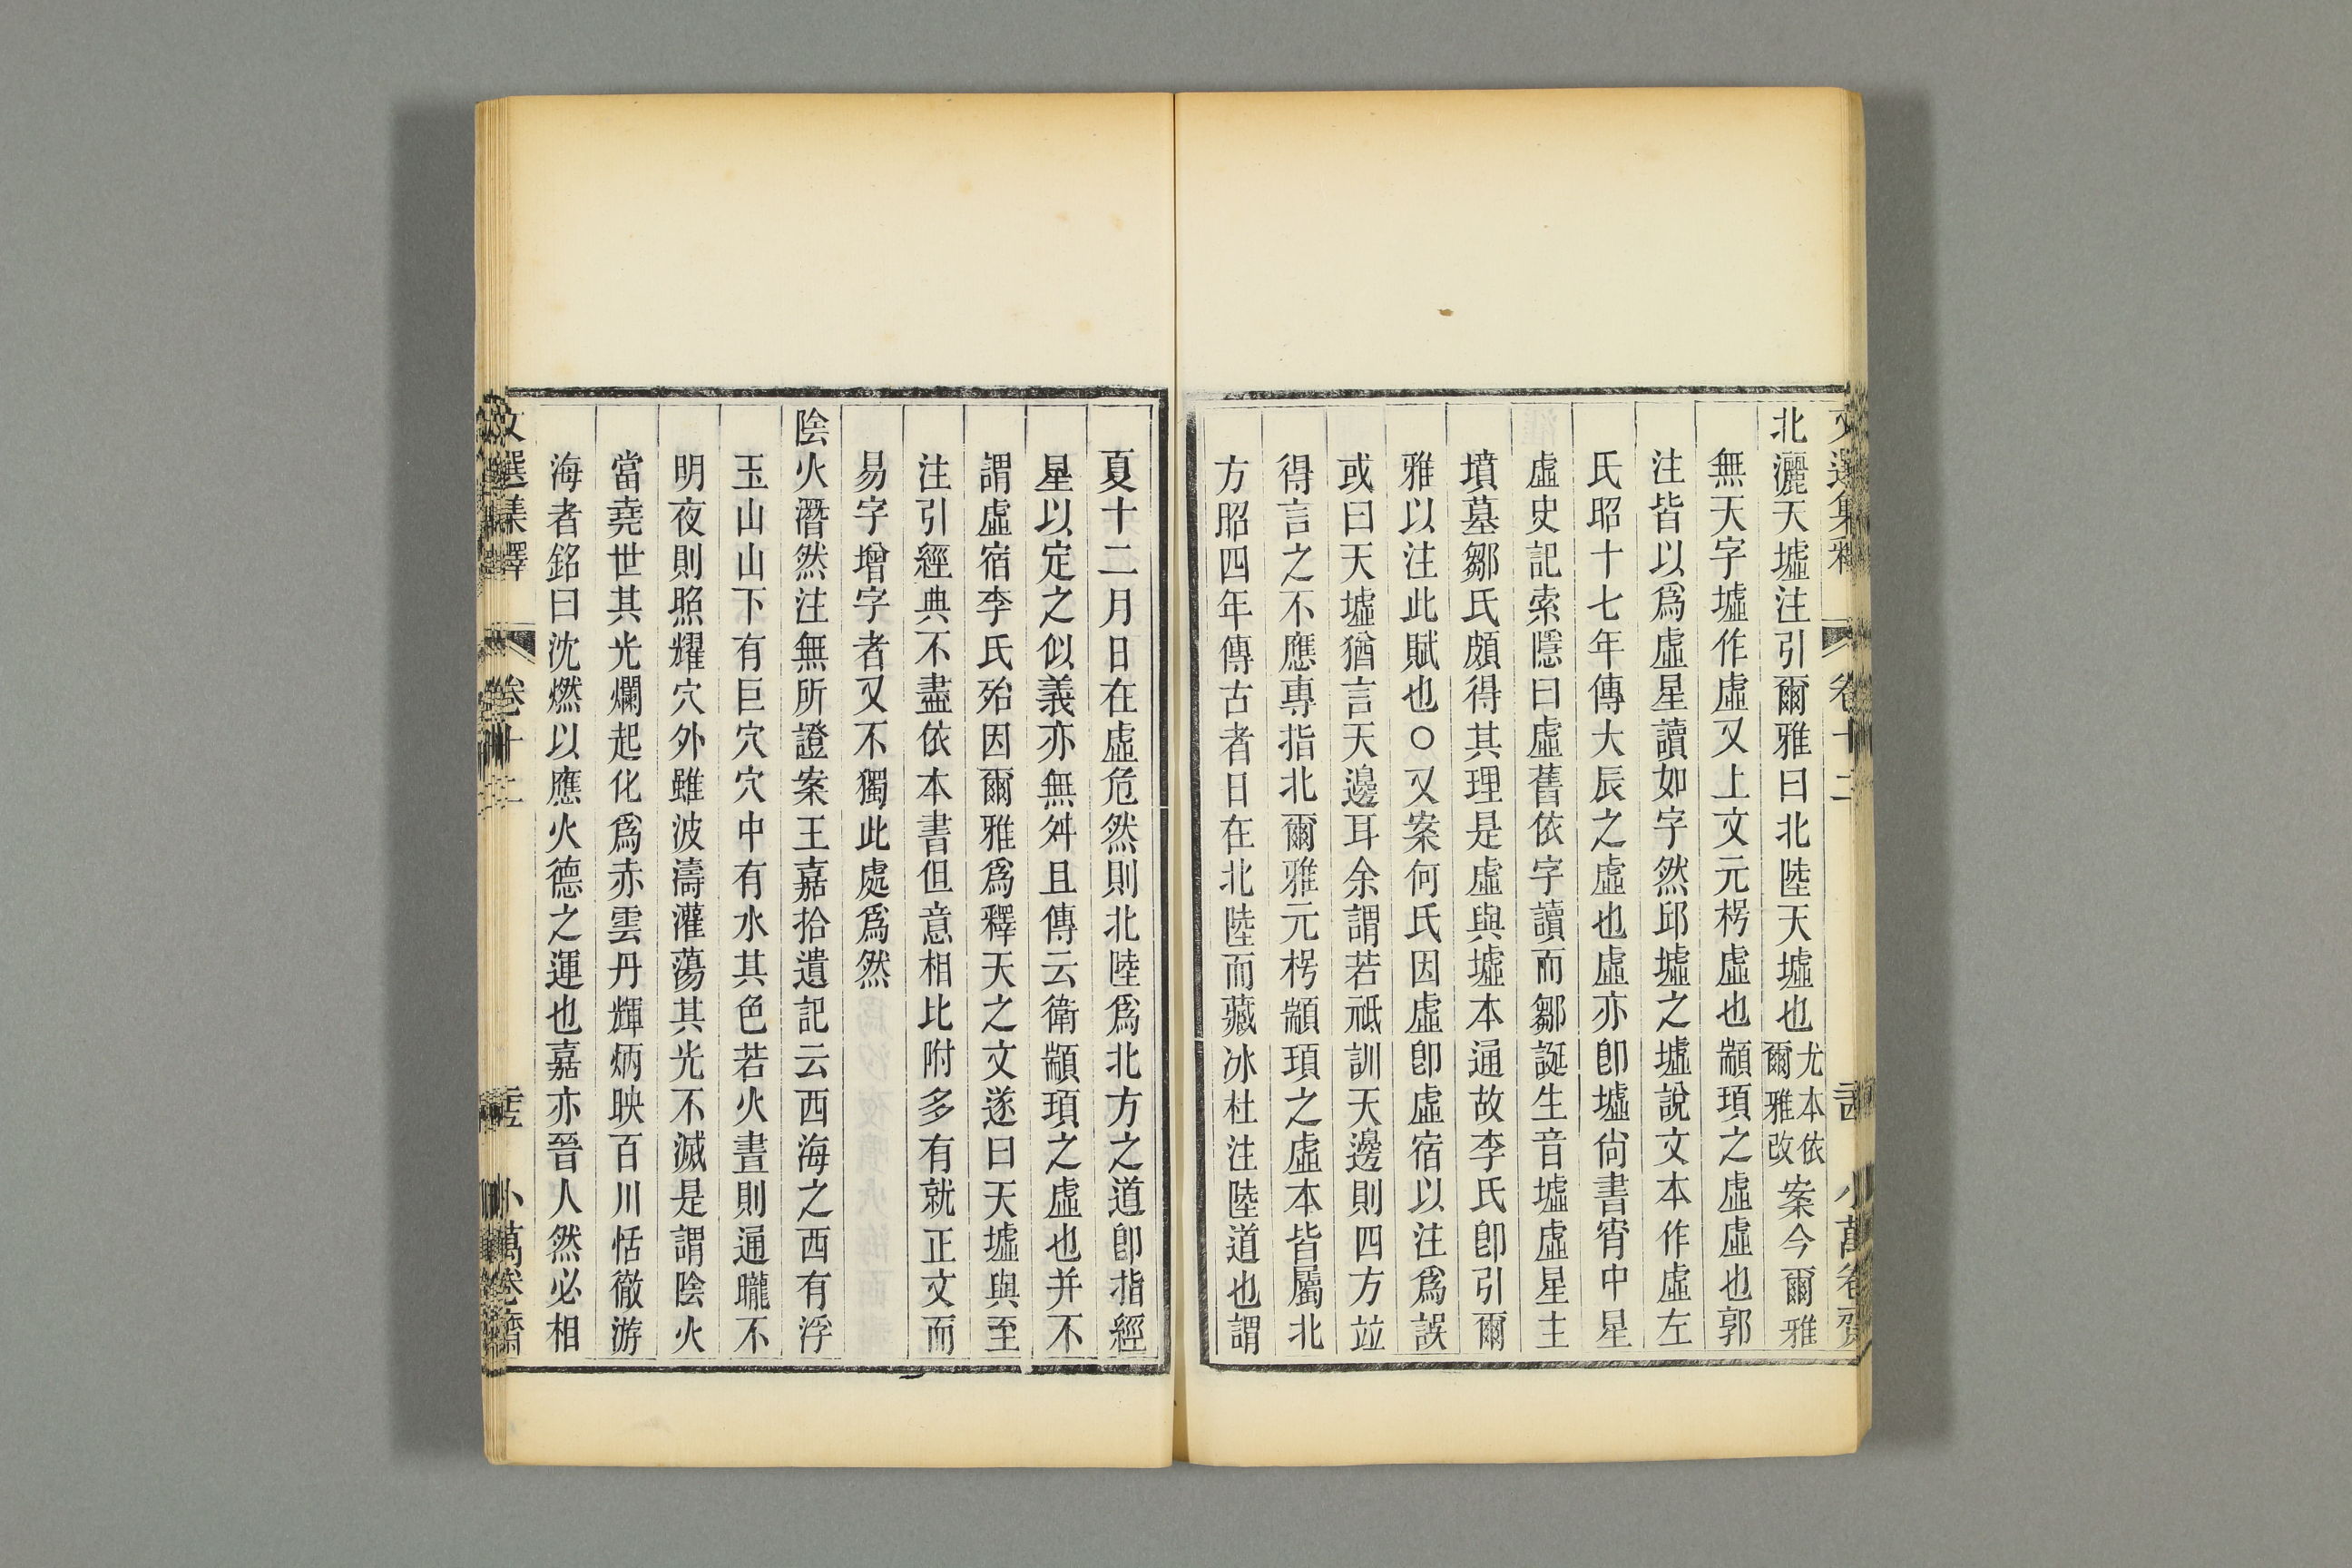 文選集釋 卷十二 小萬卷齋
北灑天墟注引爾雅曰北陸天墟也尤本依爾雅改案今爾雅
無天字墟作虛又上文元枵虛也顓頊之虛虛也郭
注皆以爲虛星讀如字然邱墟之墟說文本作虛左
氏昭十七年傳大辰之虛也虛亦卽墟尙書宵中星
虛史記索隱曰虛舊依字讀而鄒誕生音墟虛星主
墳墓鄒氏頗得其理是虛與墟本通故李氏卽引爾
雅以注此賦也○又案何氏因虛卽虛宿以注爲誤
或曰天墟猶言天邊耳余謂若祗訓天邊則四方竝
得言之不應專指北爾雅元枵顓頊之虛本皆屬北
方昭四年傳古者日在北陸而藏冰杜注陸道也謂
夏十二月日在虛危然則北陸爲北方之道卽指經
星以定之似義亦無舛且傳云衛顓頊之虛也并不
謂虛宿李氏殆因爾雅爲釋天之文遂曰天墟與至
注引經典不盡依本書但意相比附多有就正文而
易字增字者又不獨此處爲然
陰火潛然注無所證案王嘉拾遺記云西海之西有浮
玉山山下有巨穴穴中有水其色若火晝則通曨不
明夜則照耀穴外雖波濤灌蕩其光不滅是謂陰火
當堯世其光爛起化爲赤雲丹輝炳映百川恬徹游
海者銘曰沈燃以應火德之運也嘉亦晉人然必相
文選集釋 卷十二 小萬卷齋